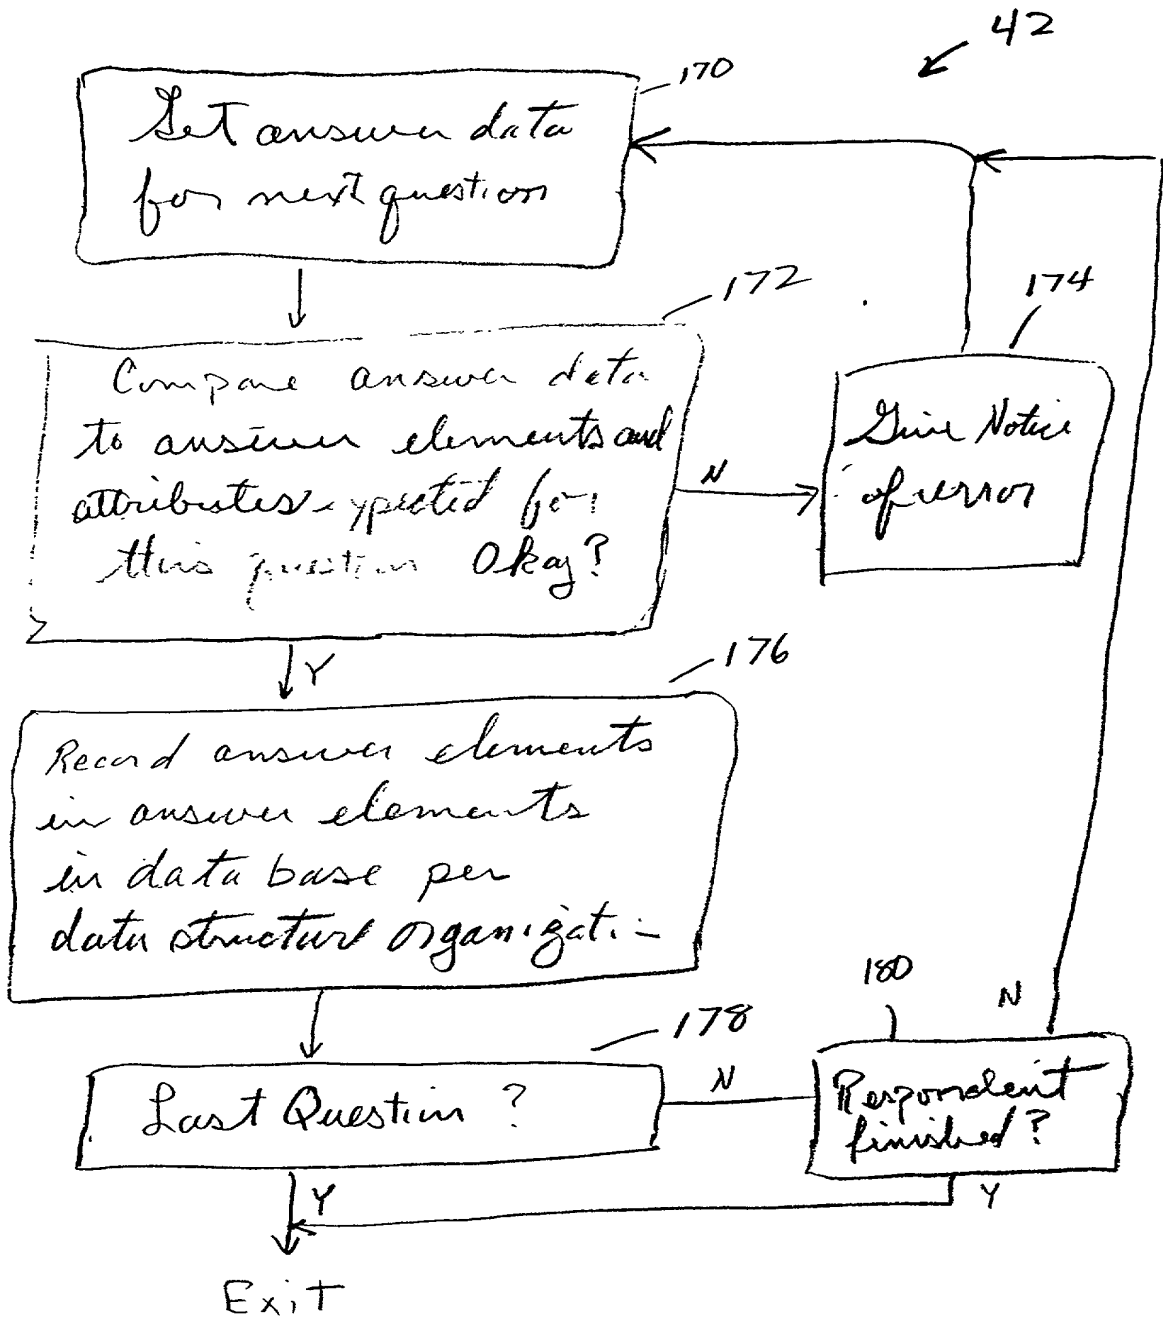 42
170
Get answer data
for next question
172
Compare answer data
to answer elements and
attributes expected for
this question Okay?
N
174
Give Notice
of error
Y
176
Record answer elements
in answer elements
in data base per
data structure organizati
178
Last Question ?
N
180
N
Respondent
finished?
Y
Y
Exit